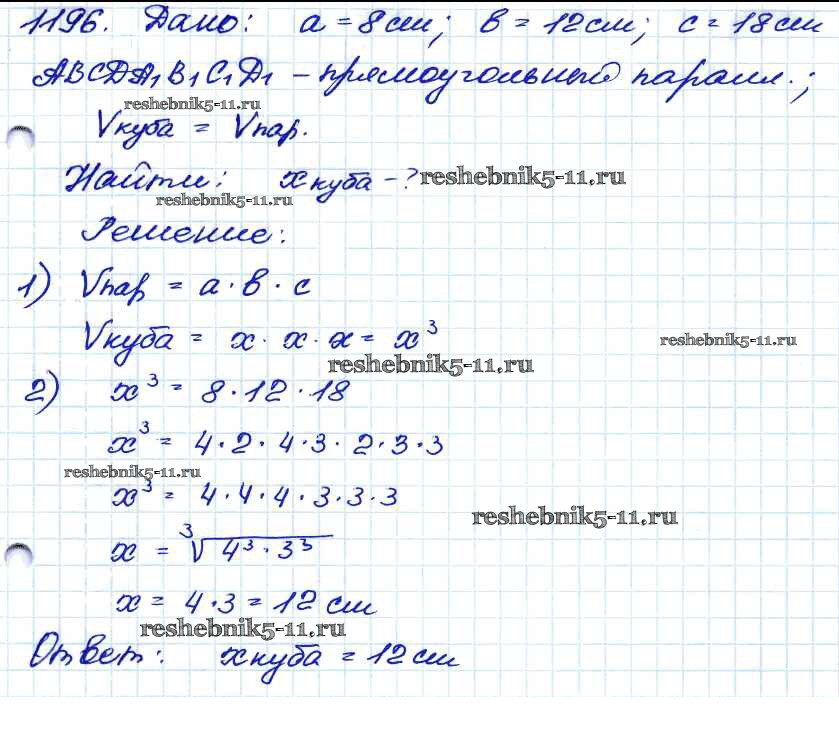 1196. Дано: a = 8 см; в = 12 см; c = 18 см
ABCDA₁B₁C₁D₁ – прямоугольный паралл.;
reshebnik5-11.ru
Vкуба = Vпар.
Найти: xкуба – ? reshebnik5-11.ru
reshebnik5-11.ru
Решение:
1) Vпар = a · в · c
Vкуба = x · x · x = x³
reshebnik5-11.ru
reshebnik5-11.ru
2) x³ = 8 · 12 · 18
x³ = 4 · 2 · 4 · 3 · 2 · 3 · 3
reshebnik5-11.ru
x³ = 4 · 4 · 4 · 3 · 3 · 3
reshebnik5-11.ru
x = ³√4³ · 3³
x = 4 · 3 = 12 см
reshebnik5-11.ru
Ответ: xкуба = 12 см